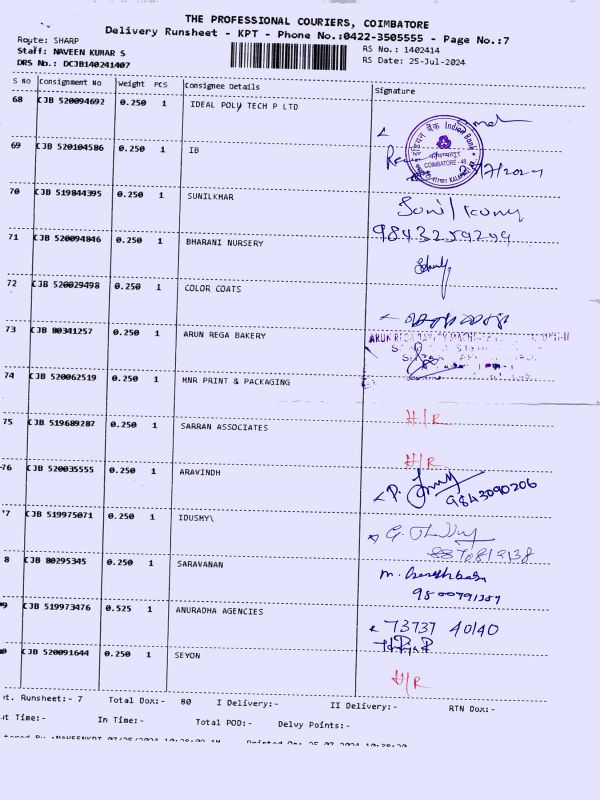 THE PROFESSIONAL COURIERS, COIMBATORE
Delivery Runsheet - KPT - Phone No.:0422-3505555 - Page No.:7
Route: SHARP
Staff: NAVEEN KUMAR S
DRS No.: DCJB140241407
RS No.: 1402414
RS Date: 25-Jul-2024
S NO Consignment No Weight PCS Consignee Details Signature
68 CJB 520094692 0.250 1 IDEAL POLY TECH P LTD
69 CJB 520104586 0.250 1 IB
इंडियन बैंक Indian Bank
COIMBATORE - 48
70 CJB 519844395 0.250 1 SUNILKMAR
Sunil Kumar
71 CJB 520094846 0.250 1 BHARANI NURSERY
9843259299
72 CJB 520029498 0.250 1 COLOR COATS
73 CJB 80341257 0.250 1 ARUN REGA BAKERY
74 CJB 520062519 0.250 1 MNR PRINT & PACKAGING
H/R
75 CJB 519689287 0.250 1 SARRAN ASSOCIATES
H/R
76 CJB 520035555 0.250 1 ARAVINDH
9843090206
7 CJB 519975071 0.250 1 IDUSMY\
8870819138
8 CJB 80295345 0.250 1 SARAVANAN
9800791357
9 CJB 519973476 0.525 1 ANURADHA AGENCIES
73737 40140
0 CJB 520091644 0.250 1 SEYON
H/R
t. Runsheet:- 7 Total Dox:- 80 I Delivery:- II Delivery:- RTN Dox:-
ut Time:- In Time:- Total POD:- Delvy Points:-